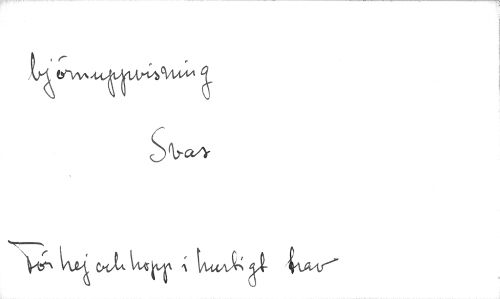 björnuppvisning
Svar
För hej och hopp i hurtigt trav